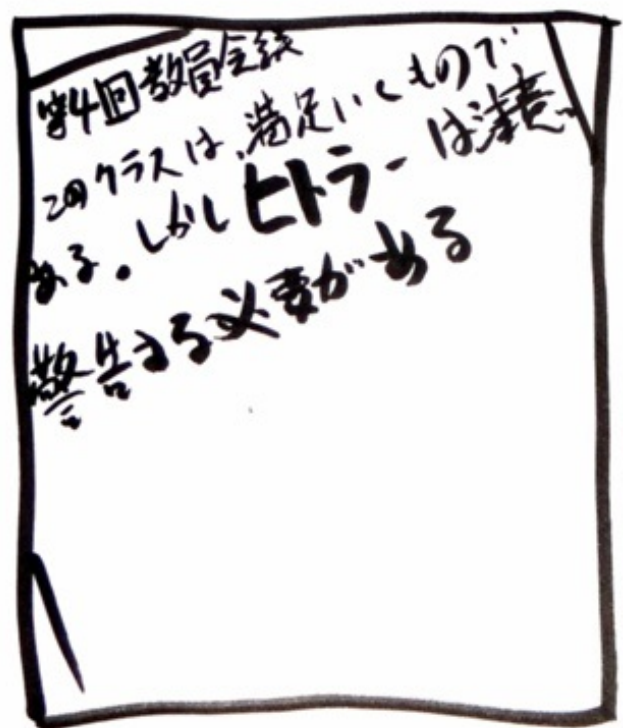 第4回教員会議
このクラスは、満足いくもので
ある。しかしヒトラーは注意、
警告する必要がある